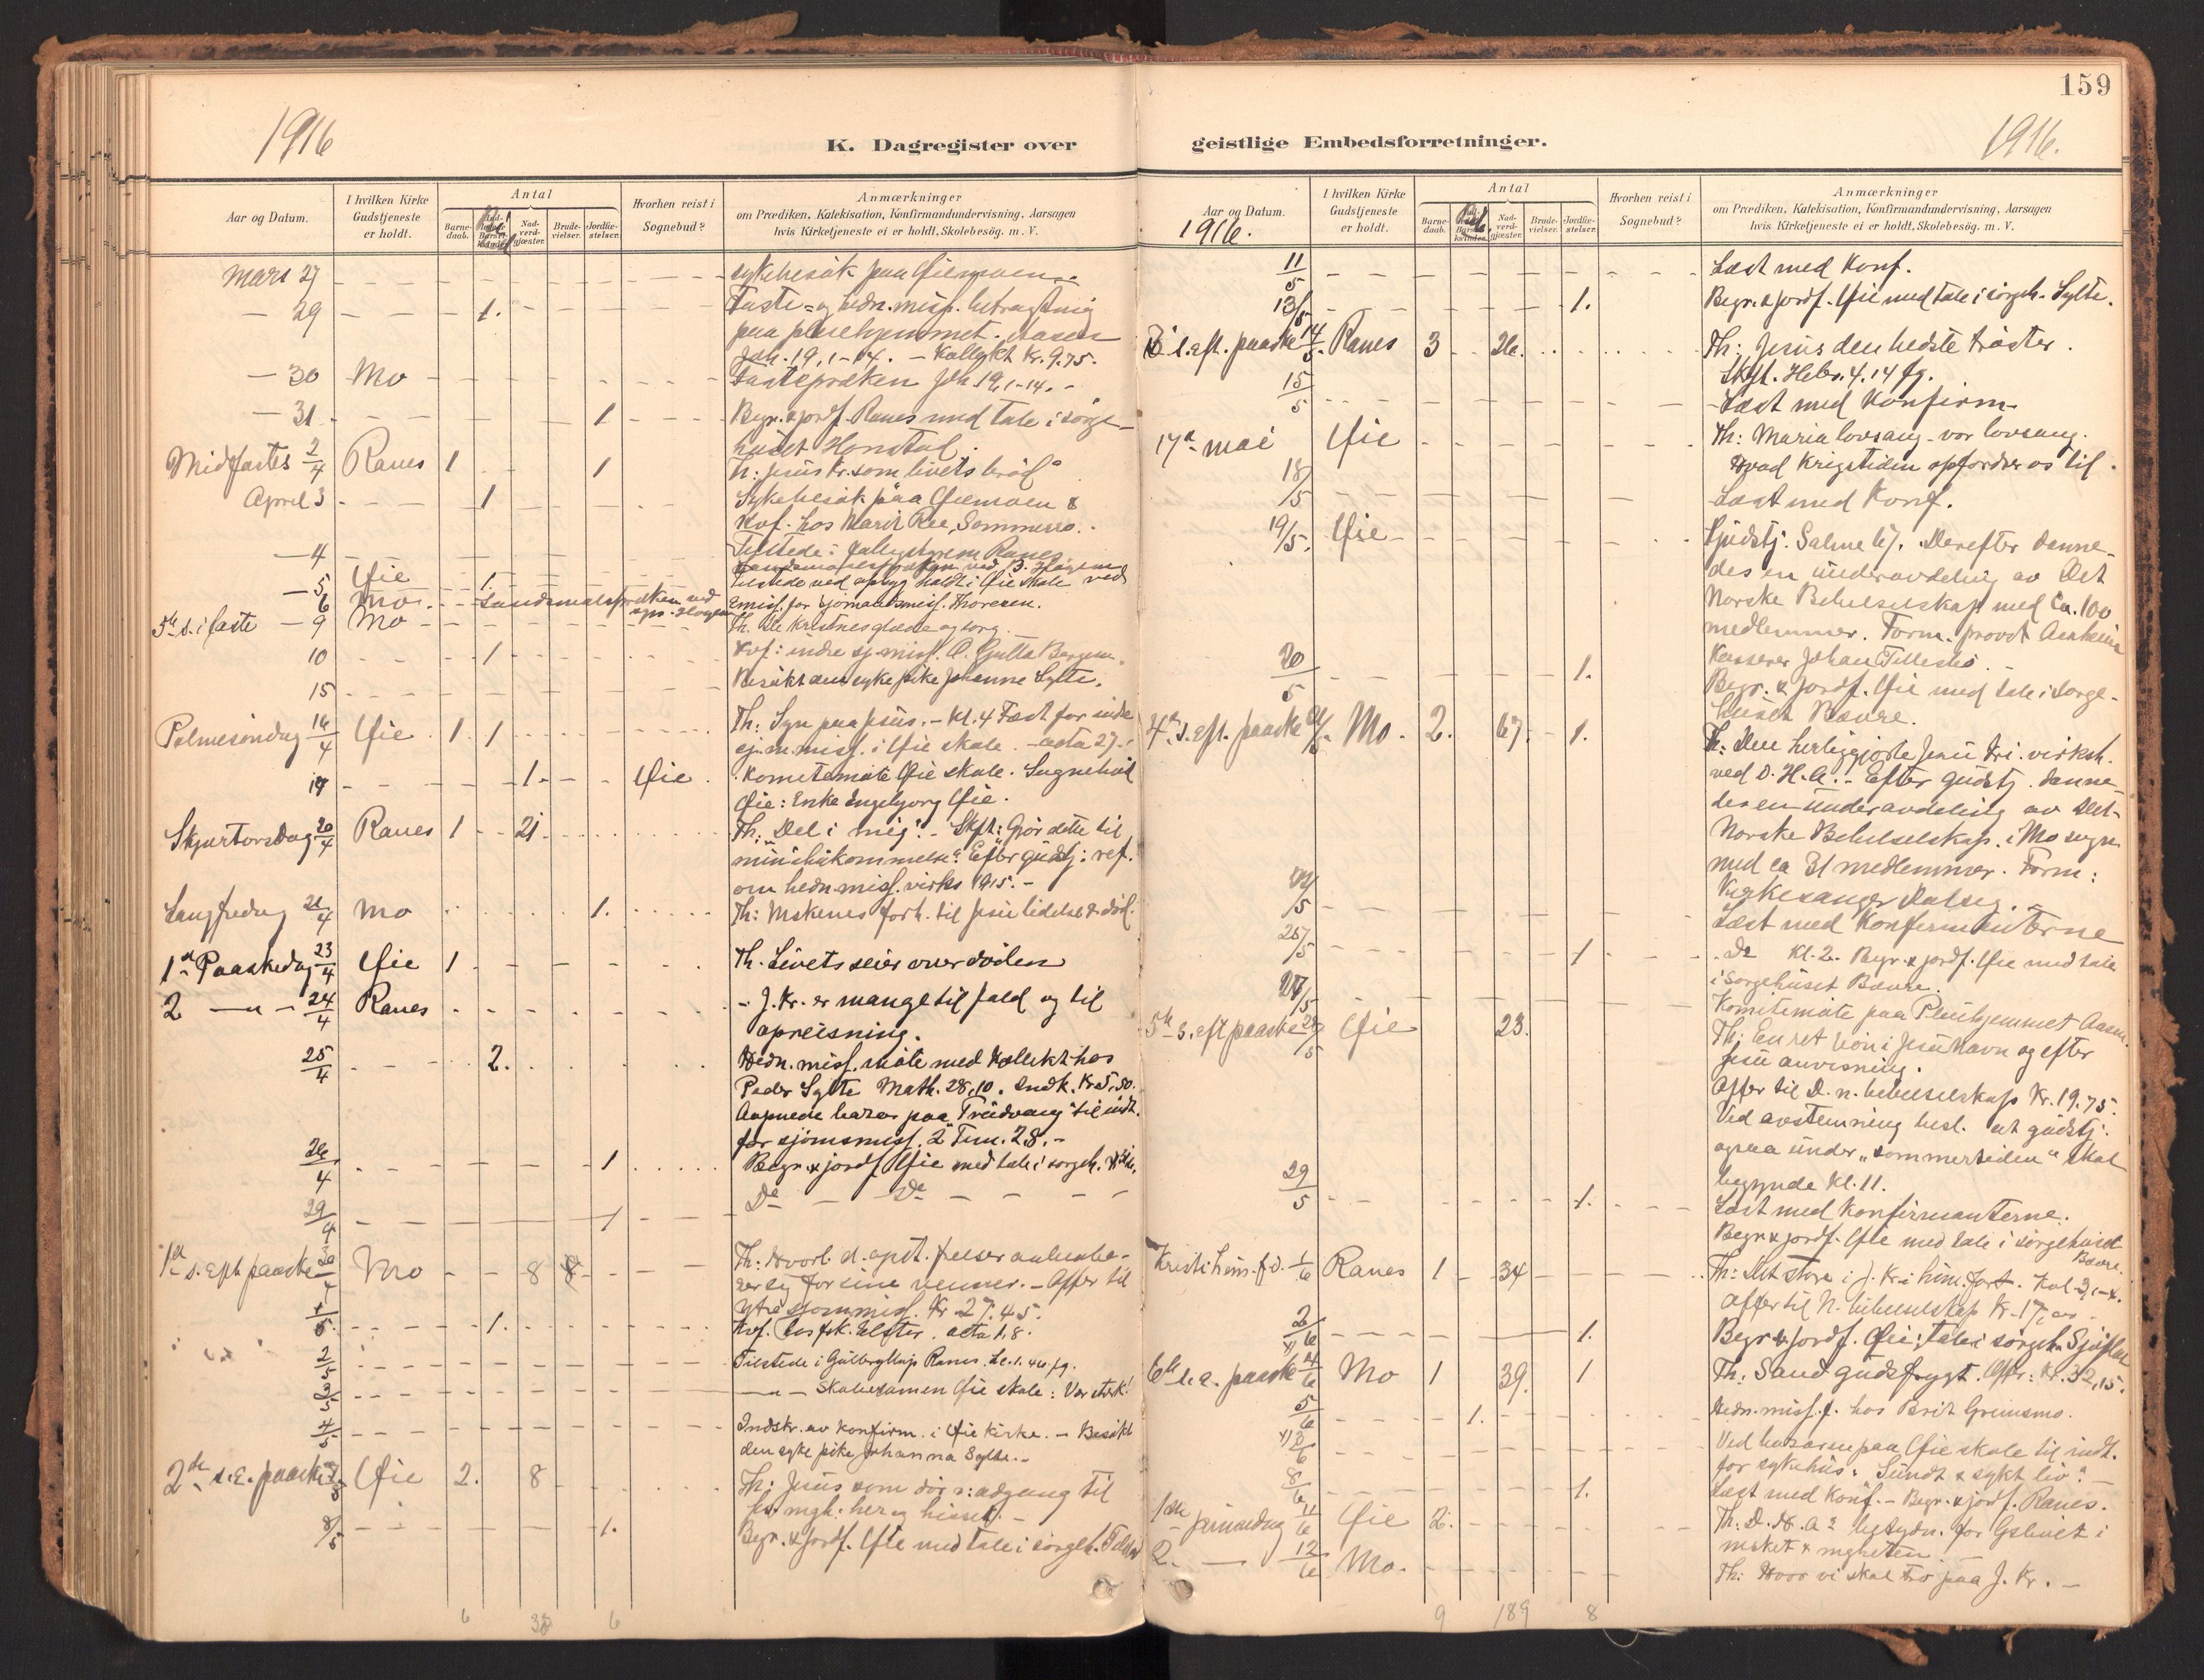 159
1916
K. Dagregister over
geistlige Embedsforretninger.
1916.
Aar og Datum.
I hvilken Kirke Gudstjeneste er holdt.
Antal
Barne-daab.
Nad-verd-gjæster.
Brude-vielser.
Jordfæ-stelser.
Hvorhen reist i Sognebud?
Anmærkninger
om Prædiken, Katekisation, Konfirmandundervisning, Aarsagen
hvis Kirketjeneste ei er holdt, Skolebesög. m. V.
mars 27 sykebesøk paa Øiemoen.
— 29 1. Faste= og hedn. miss. betragtning
paa pleiehjemmet. Aasen
Joh. 19, 1-14. – Kollekt Kr. 9.75.
— 30 Mo Fastepræken Joh. 19, 1-14. -
— 31 1 Begr. & jordf. Ranes med tale i sörge-
huset Honstad.
Midfaste s 2/4 Ranes 1 1 Th. Jesus Kr. som livets bröd
April 3 1 Sykebesøk paa Øiemoen &
Kvf. hos Marit Ree, Sommerro.
— 4 Tilstede i Ranes
— 5 Øie 1 tilstede ved holdt i Øie skole ved
6 Mo. Landsmaalspræken ved Emiss. for sjömandsmiss. Thoresen.
5te s. i faste — 9 Mo Th. De kristnes glæde og sorg.
10 1 Kvf: indre sj. miss. O. Gulla Bergem.
15 Besökt den syke pike Johanne Sylte.
Palmesöndag 16/4 Øie 1. 1 Th: Syn paa Jesus. - Kl. 4 Fest for indre
sj. m. miss. i Øie skole. – acta 27.
19 1. Øie. Kometemöte Øie skole. Sognebud
Øie: Enke Ingeborg Øie.
Skjærtorsdag 20/4 Ranes 1 21 Th: "Del i mig". - Skft: "Gjör dette til
min ihukommelse." Efter gudstj: ref.
om hedn. miss. virks 1915. -
Langfredag 21/4 Mo 1. Th: Mskenes forh. til Jesu lidelse & död.
1ste Paaskedag 23/4 Øie 1 Th. Livets seier over döden
2 — " — 24/4 Ranes - J. Kr. er mange til fald og til
opreisning.
25/4 2. Hedn. miss. möte med Kollekt hos
Peder Sylte Math. 28,10. Indk. Kr 5,50.
Aapnede basar paa "Trudvang" til indt.
for sjömsmiss. 2 Tim. 2 8. -
26/4 1 Begr. & jordf. Øie med tale i sörgeh.
29/4 1 Do — Do — — — —
1ste s. eft paaske 30/4 Mo 8 Th: Hvorl. d. opst. frelser aabenba-
rer sig for sine venner. - Offer til
ytre sjömmiss. Kr. 27.45.
1/5. 1. Kvf. acta 1.8.
2/5 Tilstede i Gulbryllup Ranes. Lc. 1. 46 fg.
3/5 — " — Skoleexamen Øie skole: Vær stærk!
4/5 Indskr. av konfirm. i Øie kirke. - Besökt
den syke pike Johanna Sylte. -
2den s. E. paaske 7/5 Øie 2. 8 Th: Jesus som dör ɔ: adgang til
for mgh: her og hisset. -
8/5 1. Begr. & jordf. Øie med tale i sörgeh.
6 38 6
Aar og Datum.
1916.
I hvilken Kirke Gudstjeneste er holdt.
Antal
Barne-daab.
Nad-verd-gjæster.
Brude-vielser.
Jordfæ-stelser.
Hvorhen reist i Sognebud?
Anmærkninger
om Prædiken, Katekisation, Konfirmandundervisning, Aarsagen
hvis Kirketjeneste ei er holdt, Skolebesög. m. V.
11/5 Læst med Konf.
13/5 1. Begr. & jordf. Øie med tale i sörgeh. Sylte.
3 s. eft. paaske 14/5. Ranes 3 26. Th: Jesus den bedste tröster.
Skft. Hebr. 4. 14 fg.
15/5 Læst med Konfirm.
17de mai Øie Th: Maria lovsang - vor lovsang.
Hvad krigstiden opfordrer os til.
18/5 Læst med Konf.
19/5. Øie Gudstj. Salme 67. Derefter danne-
des en underavdeling av Det
Norske Bibelselskap med ca. 100
medlemmer. Form. provst
Kasserer Johan Tillesbö. -
20/5 1. Begr. & jordf. Øie med tale i sorge-
huset Bævre.
4de s. eft. paaske 21/5. Mo. 2. 67. 1. Th: Den herliggjorte Jesu Kri. virksh.
ved D. H. A. - Efter gudstj. danne-
des en underavdeling av Det
Norske Bibelselskap i Mo sogn
med ca 31 medlemmer. Form:
Kirkesanger
/5 Læst med Konfirmanterne
25/5 1 Do Kl. 2. Begr. & jordf. Øie med tale
i sörgehuset Bævre.
27/5 Komitemöte paa Pleiehjemmet Aasen.
5te s. eft paaske 28/5 Øie 23. Th: En ret bön i Jesu Navn og efter
Jesu anvisning.
Offer til D. n. bibelselskap Kr. 19.75.
Ved avstemning besl. at gudstj.
ogsaa under "sommertiden" skal
begynde Kl. 11.
29/5 1. Læst med konfirmanterne.
Begr. & jordf. Øie med tale i sörgehuset
Bævre.
Kristi him. f.d. 1/6 Ranes 1 34 Th: Det store i J. Kri him. fart. Kol. 3, 1-4.
Offer til N. bibelselskap Kr. 17,
2/6 1. Begr. & jordf. Øie; tale i sörgeh.
6te s. e. paaske 4/6 Mo 1 39. 1 Th: Sand gudsfrygt. Offer: Kr. 32,15.
5/6 1. Hedn. miss. f. hos Berit Grimsmo.
/6 Ved basaren paa Øie skole til indt.
for sykehus: "Sundt & sykt liv". -
8/6 1. Læst med Konf. - Begr. & jordf. Ranes.
1ste pinsedag 11/6 Øie 2. Th: D. H. A.s betydn. for Gslivet i
msket & mgheten
2. — 12/6 Mo. Th: Hvor vi skal tro paa J. Kr. -
9 189 8